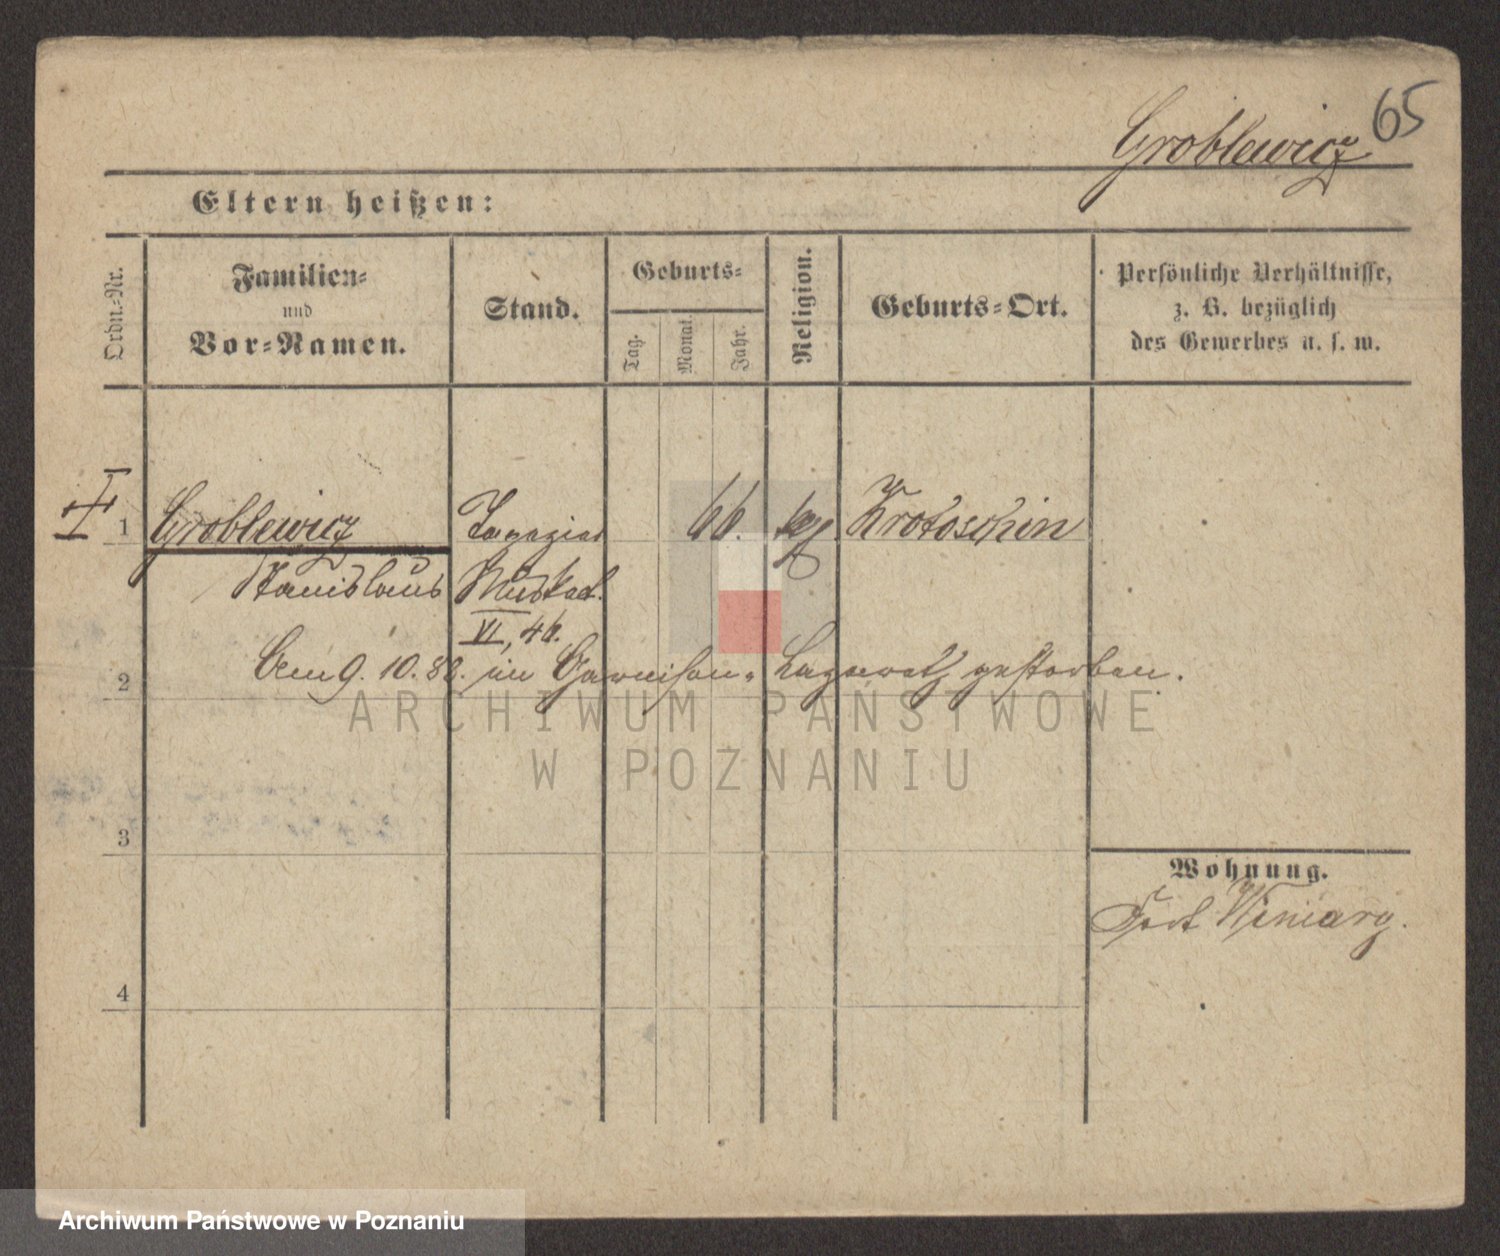 65
Groblewicz
Eltern heißen:
Ordn.-Nr.
Familien-
und
Vor-Namen.
Stand.
Geburts-
Tag.
Monat.
Jahr.
Religion.
Geburts-Ort.
Persönliche Verhältnisse,
z. B. bezüglich
des Gewerbes u. s. w.
1 Groblewicz 66. Krotoschin
Stanislaus Musket.
VI, 46.
2 Am 9. 10. 88. im Garnison-Lazareth gestorben.
ARCHIWUM PAŃSTWOWE
W POZNANIU
3
Wohnung.
Fort Winiary.
4
Archiwum Państwowe w Poznaniu